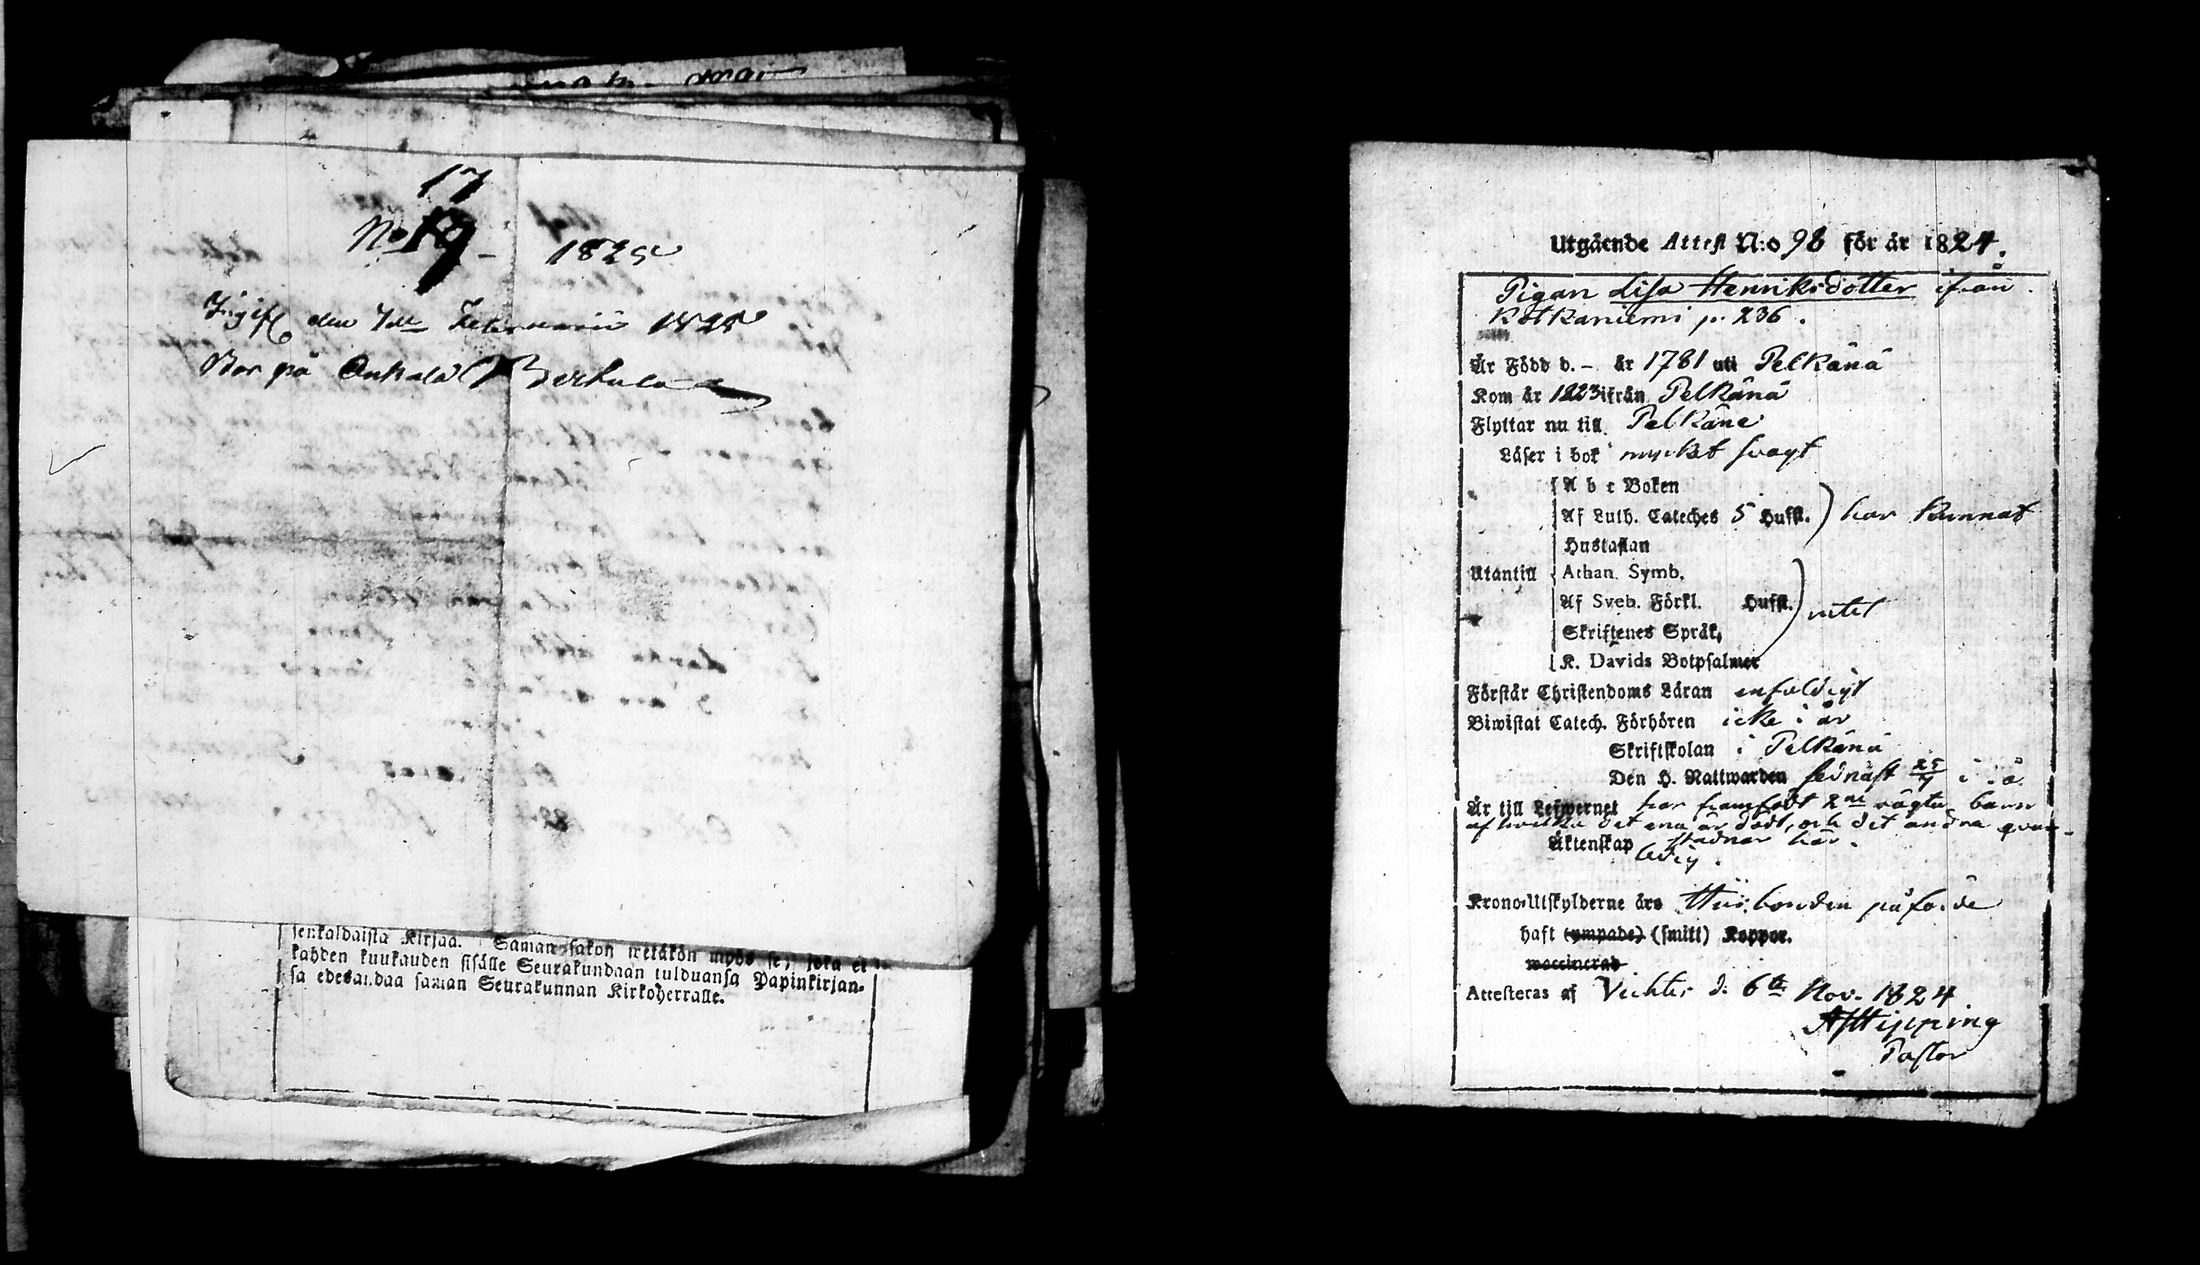 17
No 19 - 1825
Ingift den 7de Februarii 1825
Bor på Onkala Bertula
senkaldaista Kirjaa. Saman sakon wetäkön myös se, joka ei
kahden kuukauden sisälle Seurakundaan tulduansa Papinkirjan-
sa edesandaa saman Seurakunnan Kirkoherralle.
Utgående Attest N:o 98 för år 1824.
Pigan Lisa Henriksdotter ifrån
Kotkaniemi p. 236.
Är Född d. - år 1781 uti Pelkänä
Kom år 1823 ifrån Pelkänä
Flyttar nu till Pelkäne
Läser i bok mycket svagt
A b c Boken
Af Luth. Cateches 5 Hufst. har kunnat
Hustaflan
Utantill Athan. Symb.
Af Sveb. Förkl. Hufst. intet
Skriftenes Språk,
K. Davids Botpsalmer
Förstår Christendoms Läran enfaldigt
Biwistat Catech. Förhören icke i år
Skriftskolan i Pelkänä
Den H. Nattwarden sednast 25/4 i
Är till Lefwernet har framfödt 2ne oägta barn
af hvilka det ena är dödt, och det andra quar-
stadnar här.
Äktenskap ledig.
Krono-Utskylderne äro Husbonden påförde
haft (ympade) (smitt) Koppor.
waccinerad
Attesteras af Vichtis d. 6te Nov. 1824
A Hipping
Pastor